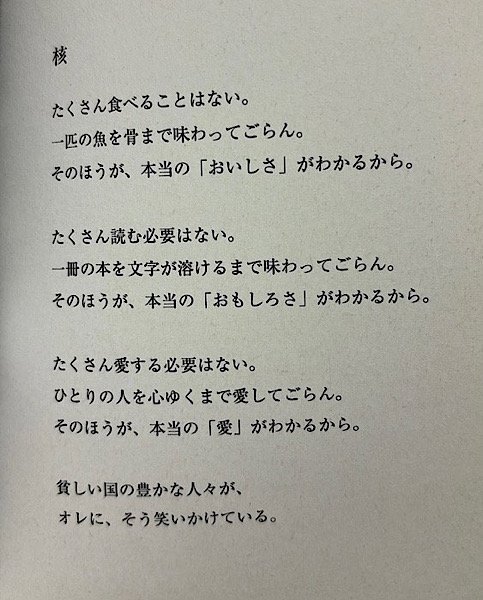 核
たくさん食べることはない。
一匹の魚を骨まで味わってごらん。
そのほうが、本当の「おいしさ」がわかるから。
たくさん読む必要はない。
一冊の本を文字が溶けるまで味わってごらん。
そのほうが、本当の「おもしろさ」がわかるから。
たくさん愛する必要はない。
ひとりの人を心ゆくまで愛してごらん。
そのほうが、本当の「愛」がわかるから。
貧しい国の豊かな人々が、
オレに、そう笑いかけている。